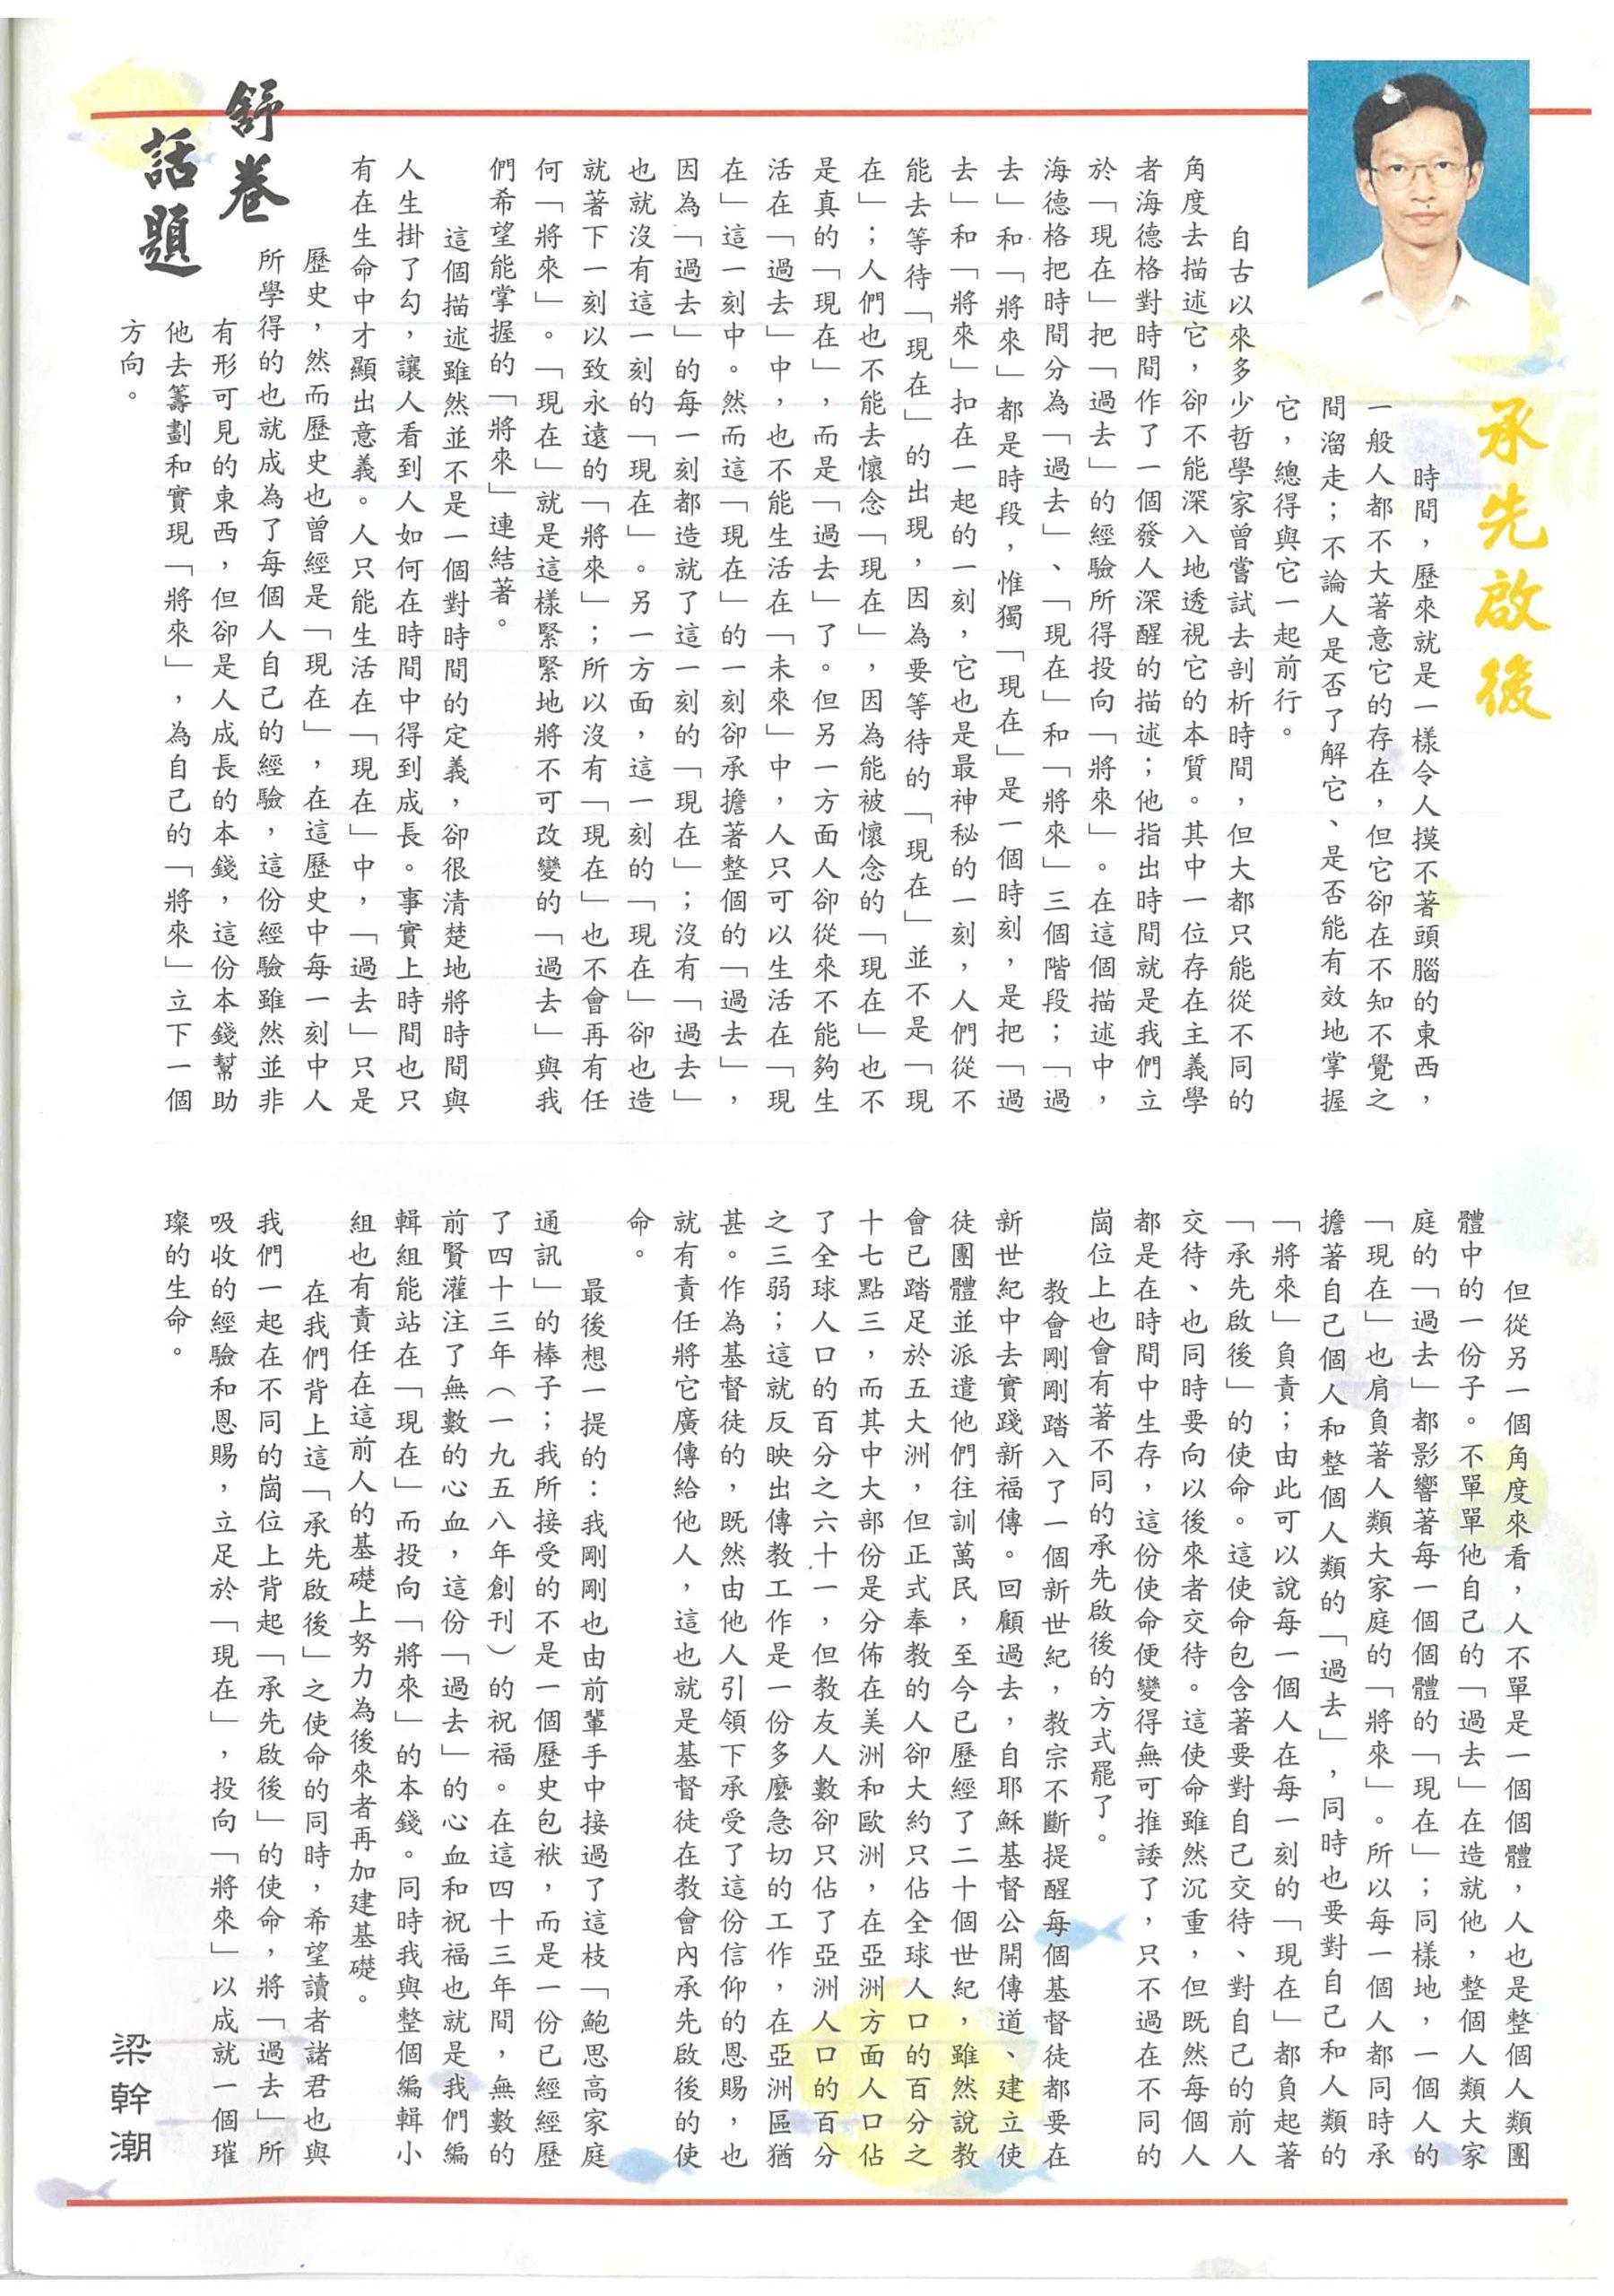 舒卷
話題
承先啟後
時間，歷來就是一樣令人摸不著頭腦的東西，
一般人都不大著意它的存在，但它卻在不知不覺之
間溜走；不論人是否了解它、是否能有效地掌握
它，總得與它一起前行。
自古以來多少哲學家曾嘗試去剖析時間，但大都只能從不同的
角度去描述它，卻不能深入地透視它的本質。其中一位存在主義學
者海德格對時間作了一個發人深醒的描述；他指出時間就是我們立
於「現在」把「過去」的經驗所得投向「將來」。在這個描述中，
海德格把時間分為「過去」、「現在」和「將來」三個階段；「過
去」和「將來」都是時段，惟獨「現在」是一個時刻，是把「過
去」和「將來」扣在一起的一刻，它也是最神秘的一刻，人們從不
能去等待「現在」的出現，因為要等待的「現在」並不是「現
在」；人們也不能去懷念「現在」，因為能被懷念的「現在」也不
是真的「現在」，而是「過去」了。但另一方面人卻從來不能夠生
活在「過去」中，也不能生活在「未來」中，人只可以生活在「現
在」這一刻中。然而這「現在」的一刻卻承擔著整個的「過去」，
因為「過去」的每一刻都造就了這一刻的「現在」；沒有「過去」
也就沒有這一刻的「現在」。另一方面，這一刻的「現在」卻也造
就著下一刻以致永遠的「將來」；所以沒有「現在」也不會再有任
何「將來」。「現在」就是這樣緊緊地將不可改變的「過去」與我
們希望能掌握的「將來」連結著。
這個描述雖然並不是一個對時間的定義，卻很清楚地將時間與
人生掛了勾，讓人看到人如何在時間中得到成長。事實上時間也只
有在生命中才顯出意義。人只能生活在「現在」中，「過去」只是
歷史，然而歷史也曾經是「現在」，在這歷史中每一刻中人
所學得的也就成為了每個人自己的經驗，這份經驗雖然並非
有形可見的東西，但卻是人成長的本錢，這份本錢幫助
他去籌劃和實現「將來」，為自己的「將來」立下一個
方向。
但從另一個角度來看，人不單是一個個體，人也是整個人類團
體中的一份子。不單單他自己的「過去」在造就他，整個人類大家
庭的「過去」都影響著每一個個體的「現在」；同樣地，一個人的
「現在」也肩負著人類大家庭的「將來」。所以每一個人都同時承
擔著自己個人和整個人類的「過去」，同時也要對自己和人類的
「將來」負責；由此可以說每一個人在每一刻的「現在」都負起著
「承先啟後」的使命。這使命包含著要對自己交待、對自己的前人
交待、也同時要向以後來者交待。這使命雖然沉重，但既然每個人
都是在時間中生存，這份使命便變得無可推諉了，只不過在不同的
崗位上也會有著不同的承先啟後的方式罷了。
教會剛剛踏入了一個新世紀，教宗不斷提醒每個基督徒都要在
新世紀中去實踐新福傳。回顧過去，自耶穌基督公開傳道、建立使
徒團體並派遣他們往訓萬民，至今已歷經了二十個世紀，雖然說教
會已踏足於五大洲，但正式奉教的人卻大約只佔全球人口的百分之
十七點三，而其中大部份是分佈在美洲和歐洲，在亞洲方面人口佔
了全球人口的百分之六十一，但教友人數卻只佔了亞洲人口的百分
之三弱；這就反映出傳教工作是一份多麼急切的工作，在亞洲區猶
甚。作為基督徒的，既然由他人引領下承受了這份信仰的恩賜，也
就有責任將它廣傳給他人，這也就是基督徒在教會內承先啟後的使
命。
最後想一提的：我剛剛也由前輩手中接過了這枝「鮑思高家庭
通訊」的棒子；我所接受的不是一個歷史包袱，而是一份已經經歷
了四十三年（一九五八年創刊）的祝福。在這四十三年間，無數的
前賢灌注了無數的心血，這份「過去」的心血和祝福也就是我們編
輯組能站在「現在」而投向「將來」的本錢。同時我與整個編輯小
組也有責任在這前人的基礎上努力為後來者再加建基礎。
在我們背上這「承先啟後」之使命的同時，希望讀者諸君也與
我們一起在不同的崗位上背起「承先啟後」的使命，將「過去」所
吸收的經驗和恩賜，立足於「現在」，投向「將來」以成就一個璀
璨的生命。
梁幹潮